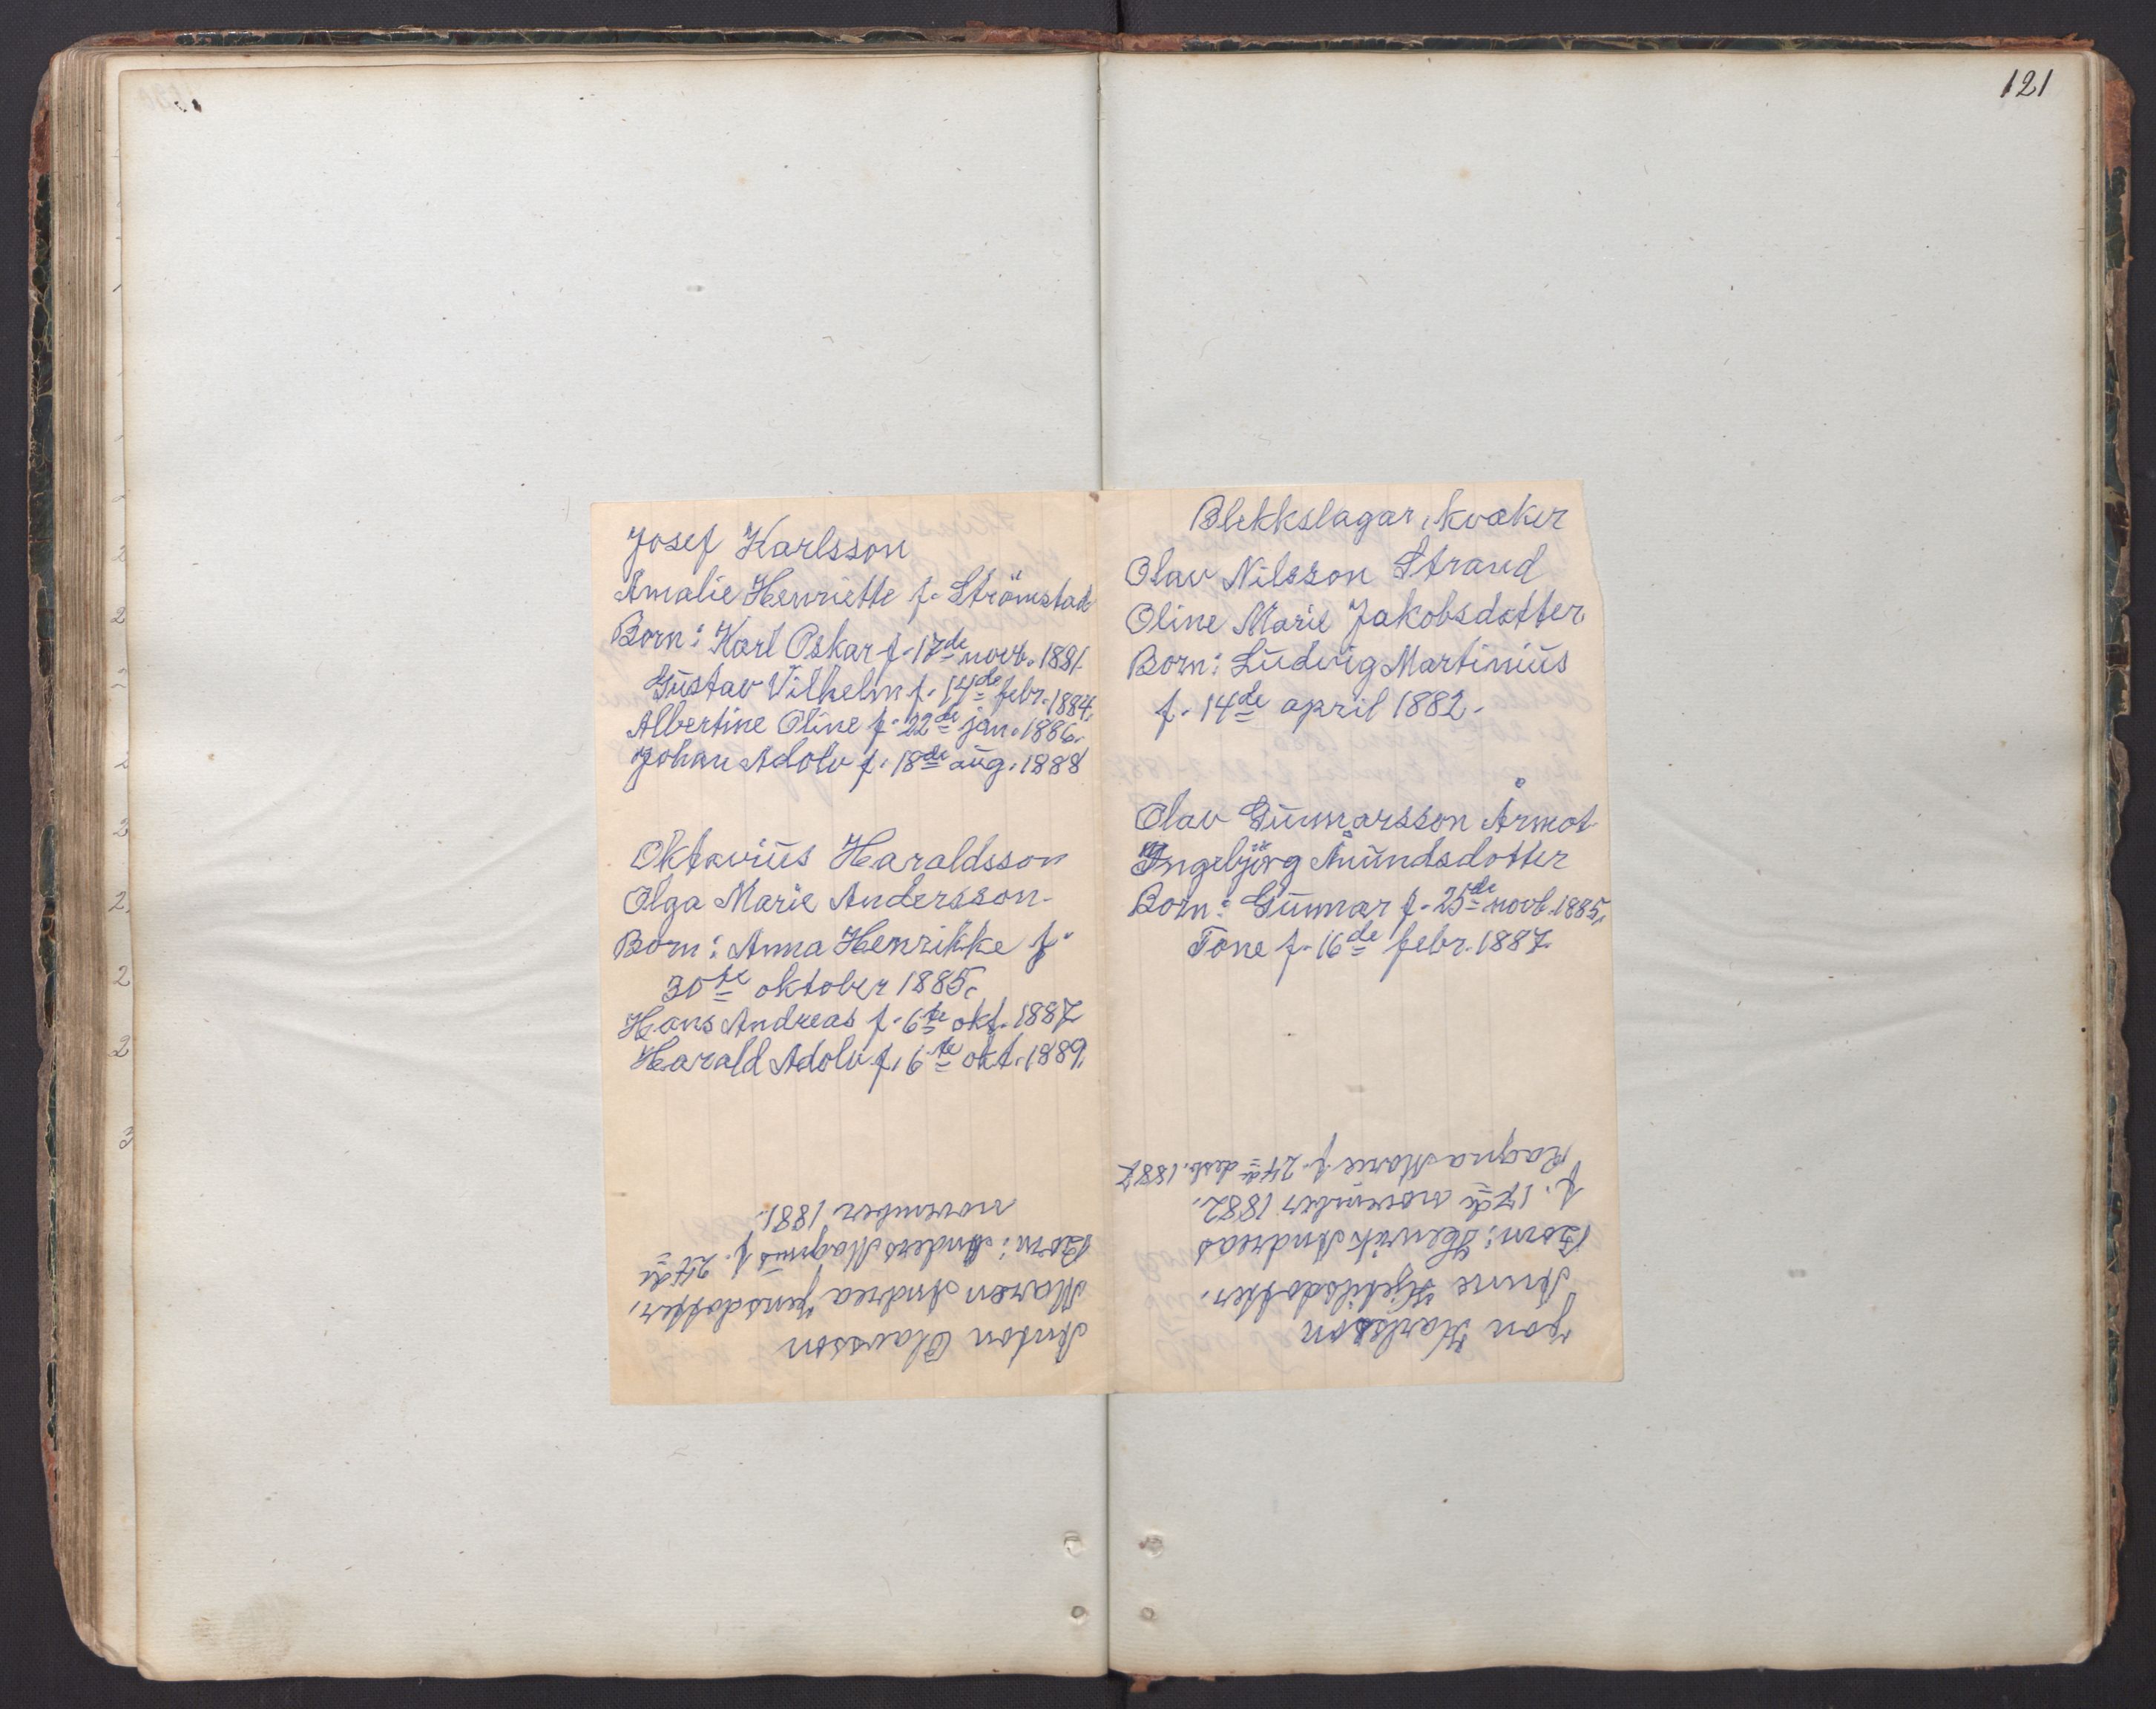 121
Josef Karlsson
Amalie Henriette f. Strömstad
Born: Karl Oskar f. 17de novb. 1881.
Gustav Vilhelm f. 14de febr. 1884.
Albertine Oline f. 22de jan. 1886.
Johan Adolv f. 18de aug. 1888
Oktavius Haraldsson
Olga Marie Andersson.
Born: Anna Henrikke f.
30te oktober 1885.
Hans Andreas f. 6te okt. 1887
Harald Adolv f. 6te okt. 1889.
Anton Olavsson
Maren Andrea Jensdotter,
Born: Anders Magnus f. 24de
november 1881.
Blekkslagar, kvæker
Olav Nilsson Strand
Oline Marie Jakobsdotter
Born: Ludvig Martinius
f. 14de april 1882.
Olav Gunnarsson Åmot
Ingebjörg Åmundsdotter
Born: Gunnar f. 25de novb. 1885.
Tone f. 16de febr. 1887.
Jon Karlsson
Anne Kjetilsdotter.
Born: Henrik Andreas
f. 17de november 1882.
Ragna Marie f. 24de desb. 1887